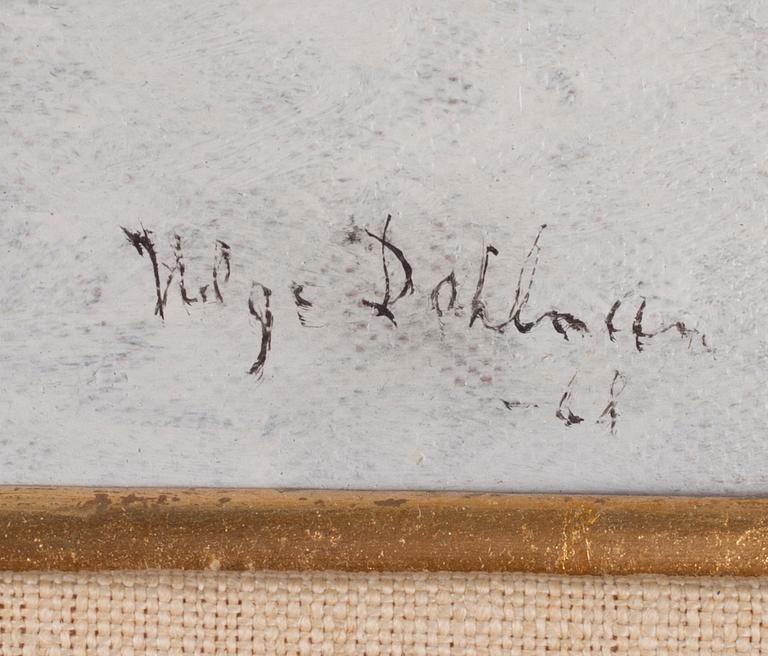 Helge Dahlman
-68